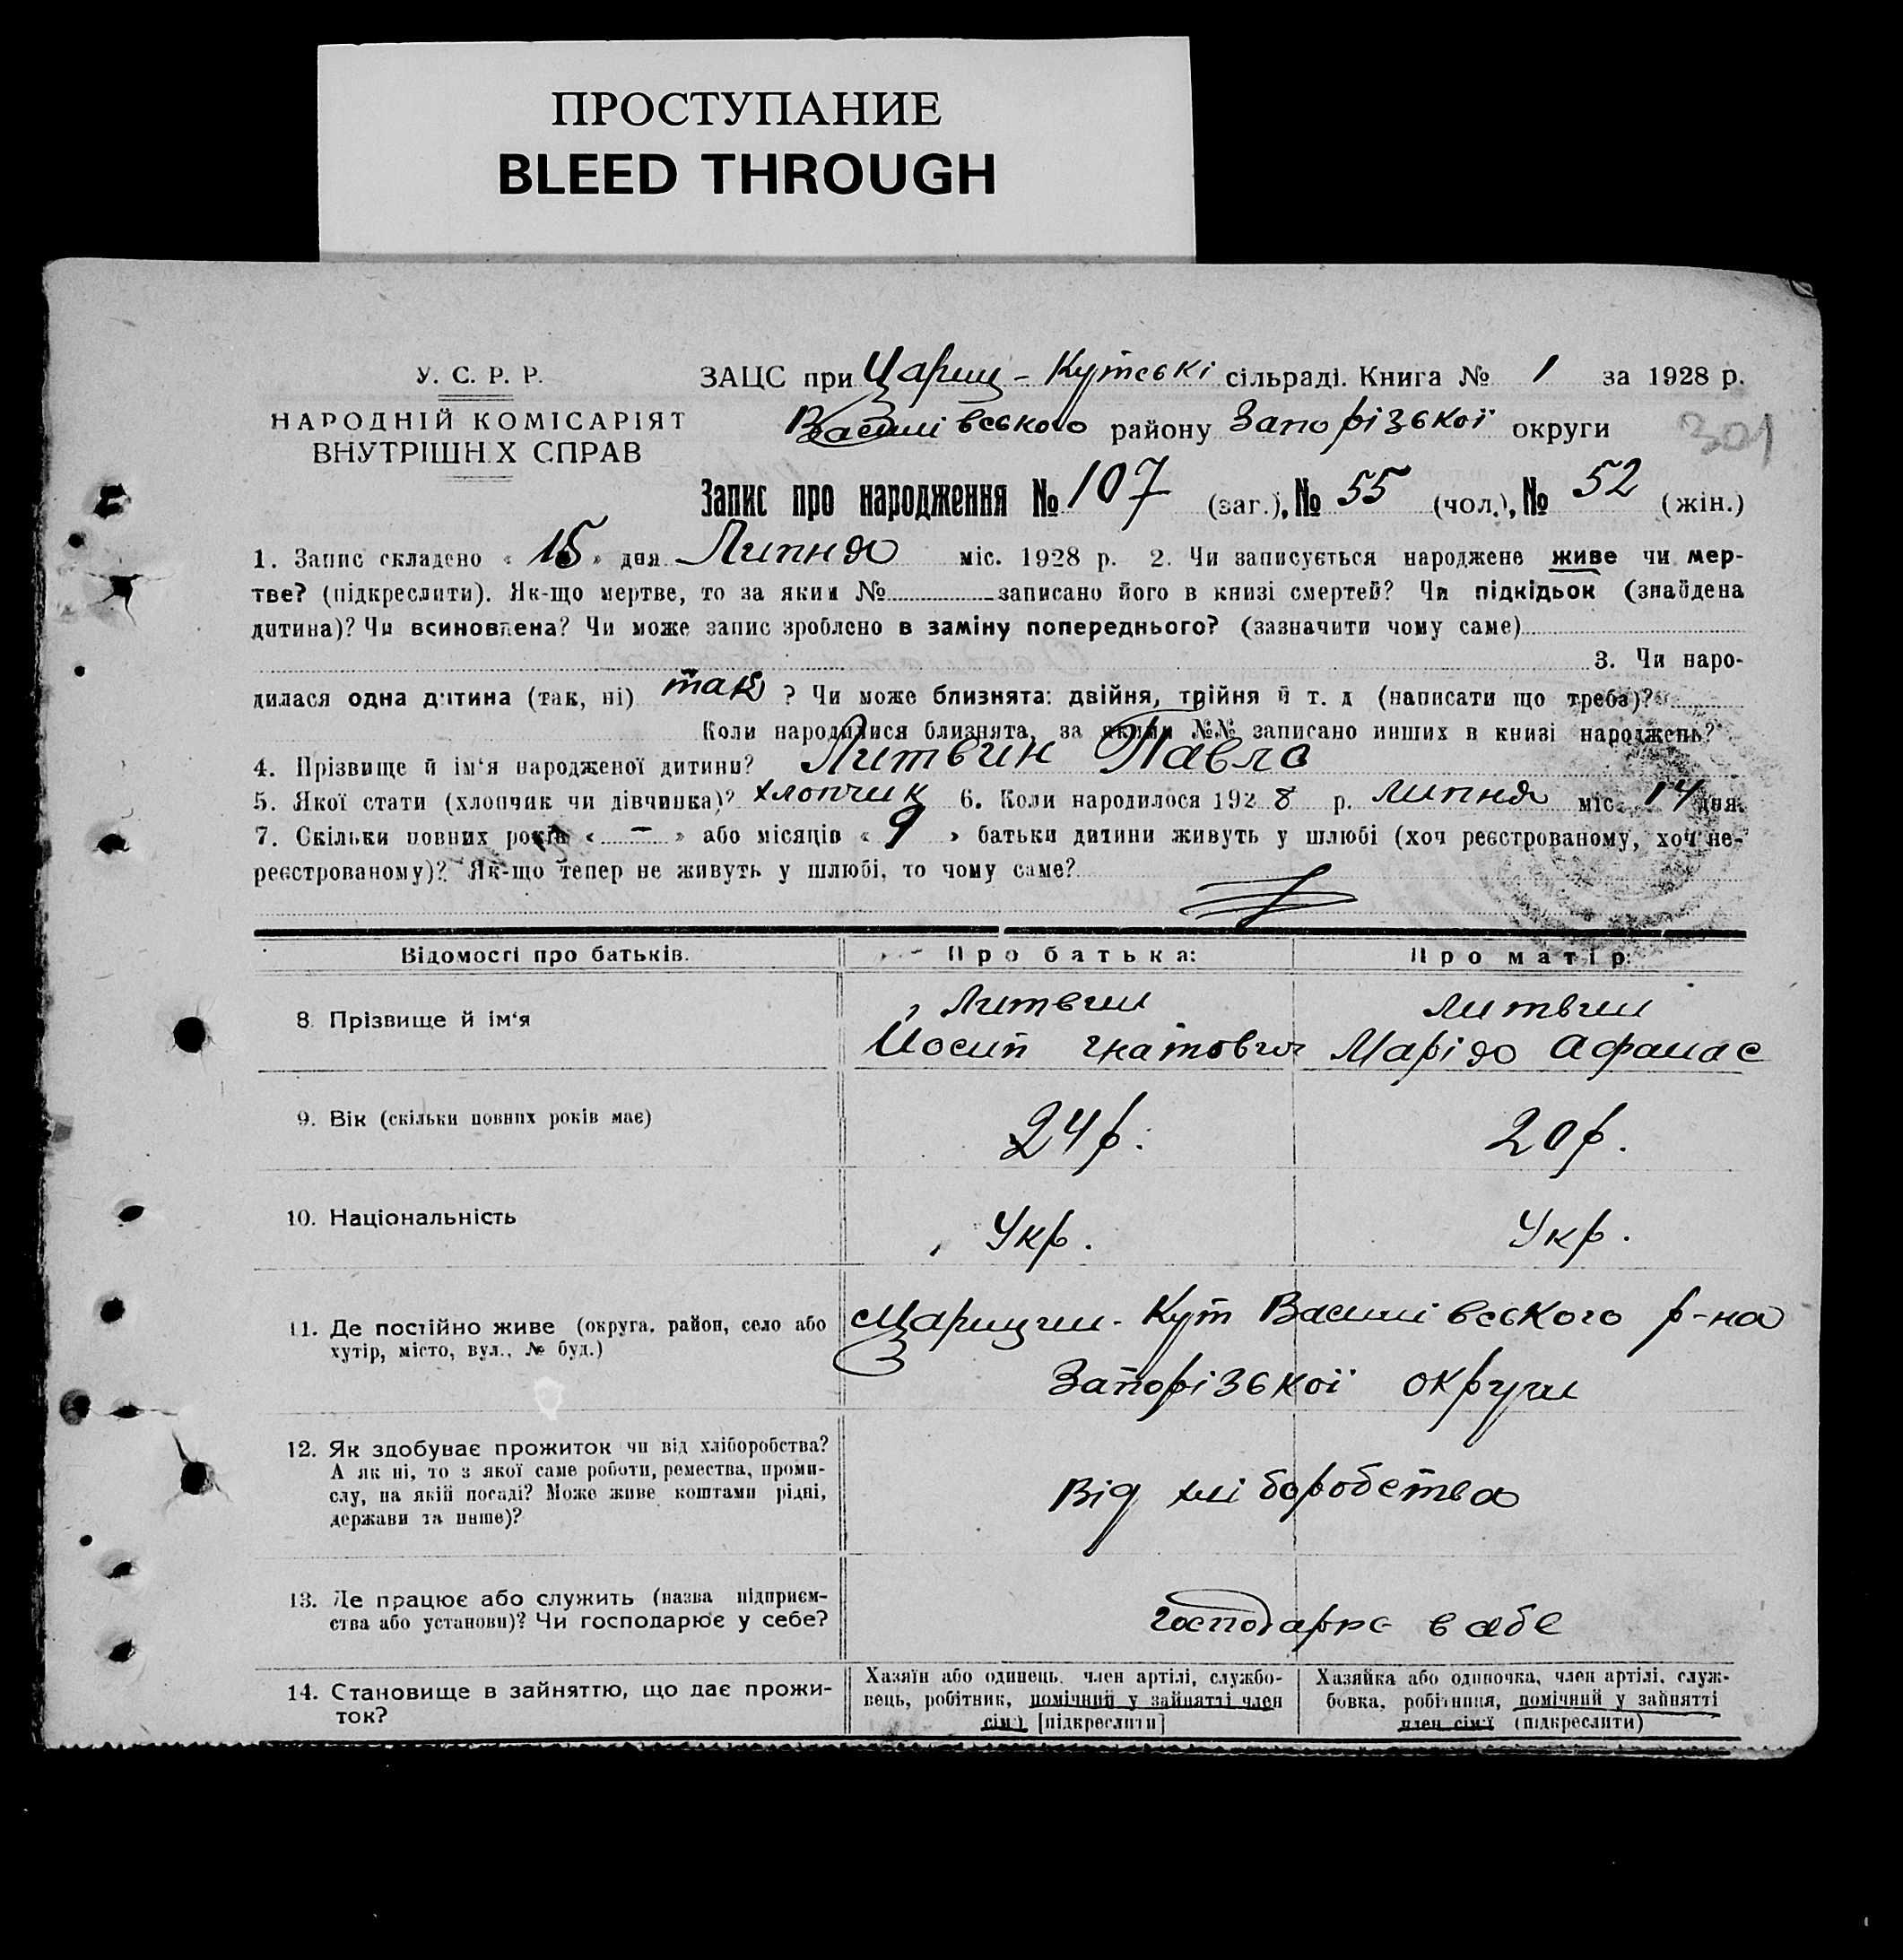 ПРОСТУПАНИЕ
BLEED THROUGH
У. С. Р. Р.
НАРОДНІЙ КОМІСАРІЯТ
ВНУТРІШНІХ СПРАВ
ЗАЦС при Цариц-Кутські сільраді. Книга № 1 за 1928 р.
Василівського району Запорізької округи
301
Запис про народження № 107 (заг.), № 55 (чол.), № 52 (жін.)
1. Запис складено « 15 » дня Липня міс. 1928 р. 2. Чи записується народжене живе чи мер-
тве? (підкреслити). Як-що мертве, то за яким № записано його в книзі смертей? Чи підкідьок (знайдена
дитина)? Чи всиновлена? Чи може запис зроблено в заміну попереднього? (зазначити чому саме)
3. Чи наро-
дилася одна дитина (так, ні) так ? Чи може близнята: двійня, трійня й т. д (написати що треба)?
Коли народилися близнята, за якими №№ записано инших в книзі народжень?
4. Прізвище й ім'я народженої дитини? Литвин Павло
5. Якої стати (хлопчик чи дівчинка)? хлопчик 6. Коли народилося 1928 р. липня міс. 14 дня.
7. Скільки повних років « – » або місяців « 9 » батьки дитини живуть у шлюбі (хоч реєстрованому, хоч не-
реєстрованому)? Як-що тепер не живуть у шлюбі, то чому саме?
Відомості про батьків. Про батька: Про матір:
Литвин Литвин
8. Прізвище й ім'я
Йосип Гнатович Марія Афанас
9. Вік (скільки повних років має) 24 р. 20 р.
10. Національність Укр. Укр.
11. Де постійно живе (округа, район, село або Царицин-Кут Василівського р-на
хутір, місто, вул., № буд.)
Запорізької округи
12. Як здобуває прожиток чи від хліборобства?
А як ні, то з якої саме роботи, ремества, проми-
слу, на якій посаді? Може живе коштами рідні, Від хліборобства
держави та инше)?
13. Де працює або служить (назва підприєм-
ства або установи)? Чи господарює у себе? господарює в себе
14. Становище в зайняттю, що дає прожи-
ток?
Хазяїн або одинець, член артілі, службо-
вець, робітник, помічний у зайнятті член
сім'ї [підкреслити]
Хазяйка або одиночка, член артілі, служ-
бовка, робітниця, помічний у зайнятті
член сім'ї (підкреслити)